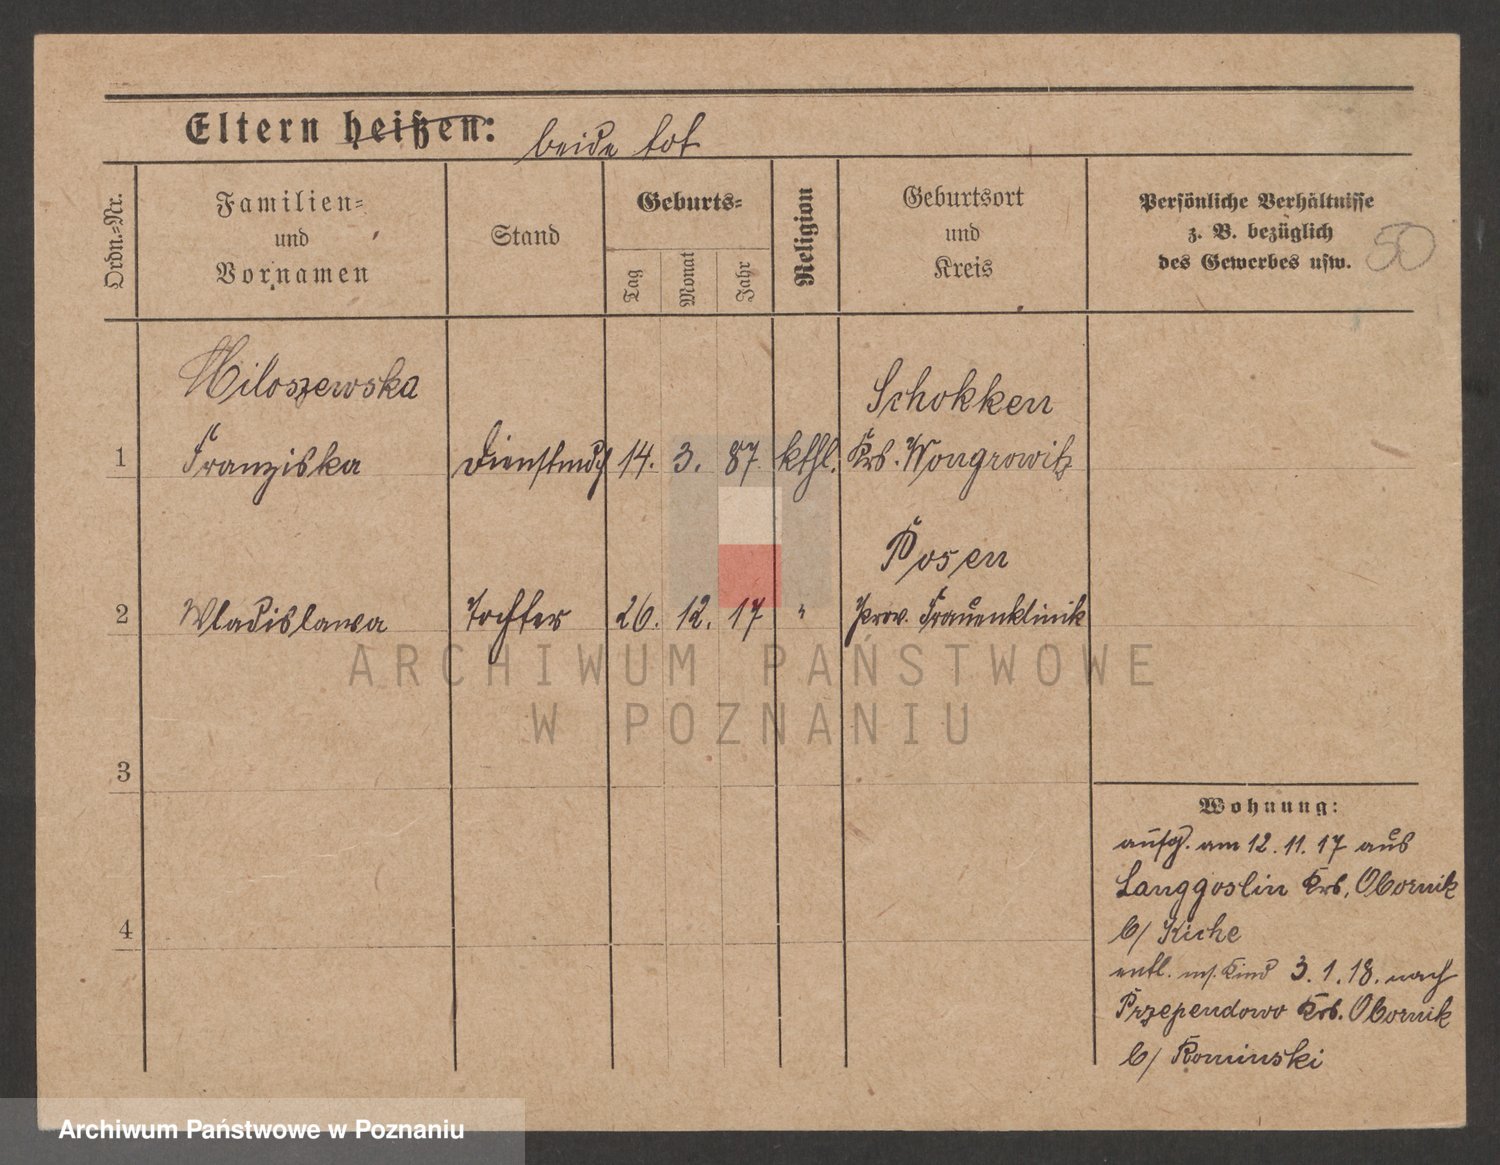 Eltern heißen: beide tot
Ordn.-Nr.
Familien-
und
Vornamen
Stand
Geburts-
Tag
Monat
Jahr
Religion
Geburtsort
und
Kreis
Persönliche Verhältnisse
z. B. bezüglich
des Gewerbes usw.
50
Miloszewska
Schokken
1 Franziska Dienstmdch 14. 3. 87 kthl. Krs. Wongrowitz
Posen
2 Wladislawa Tochter 26. 12. 17 " Prov. Frauenklinik
ARCHIWUM PAŃSTWOWE
W POZNANIU
3
4
Wohnung:
aufg. am 12. 11. 17 aus
Langgoslin Krs. Obornik
b/ Kiche
entl. m/. Kind 3. 1. 18. nach
Przependowo Krs. Obornik
b/ Rominski
Archiwum Państwowe w Poznaniu